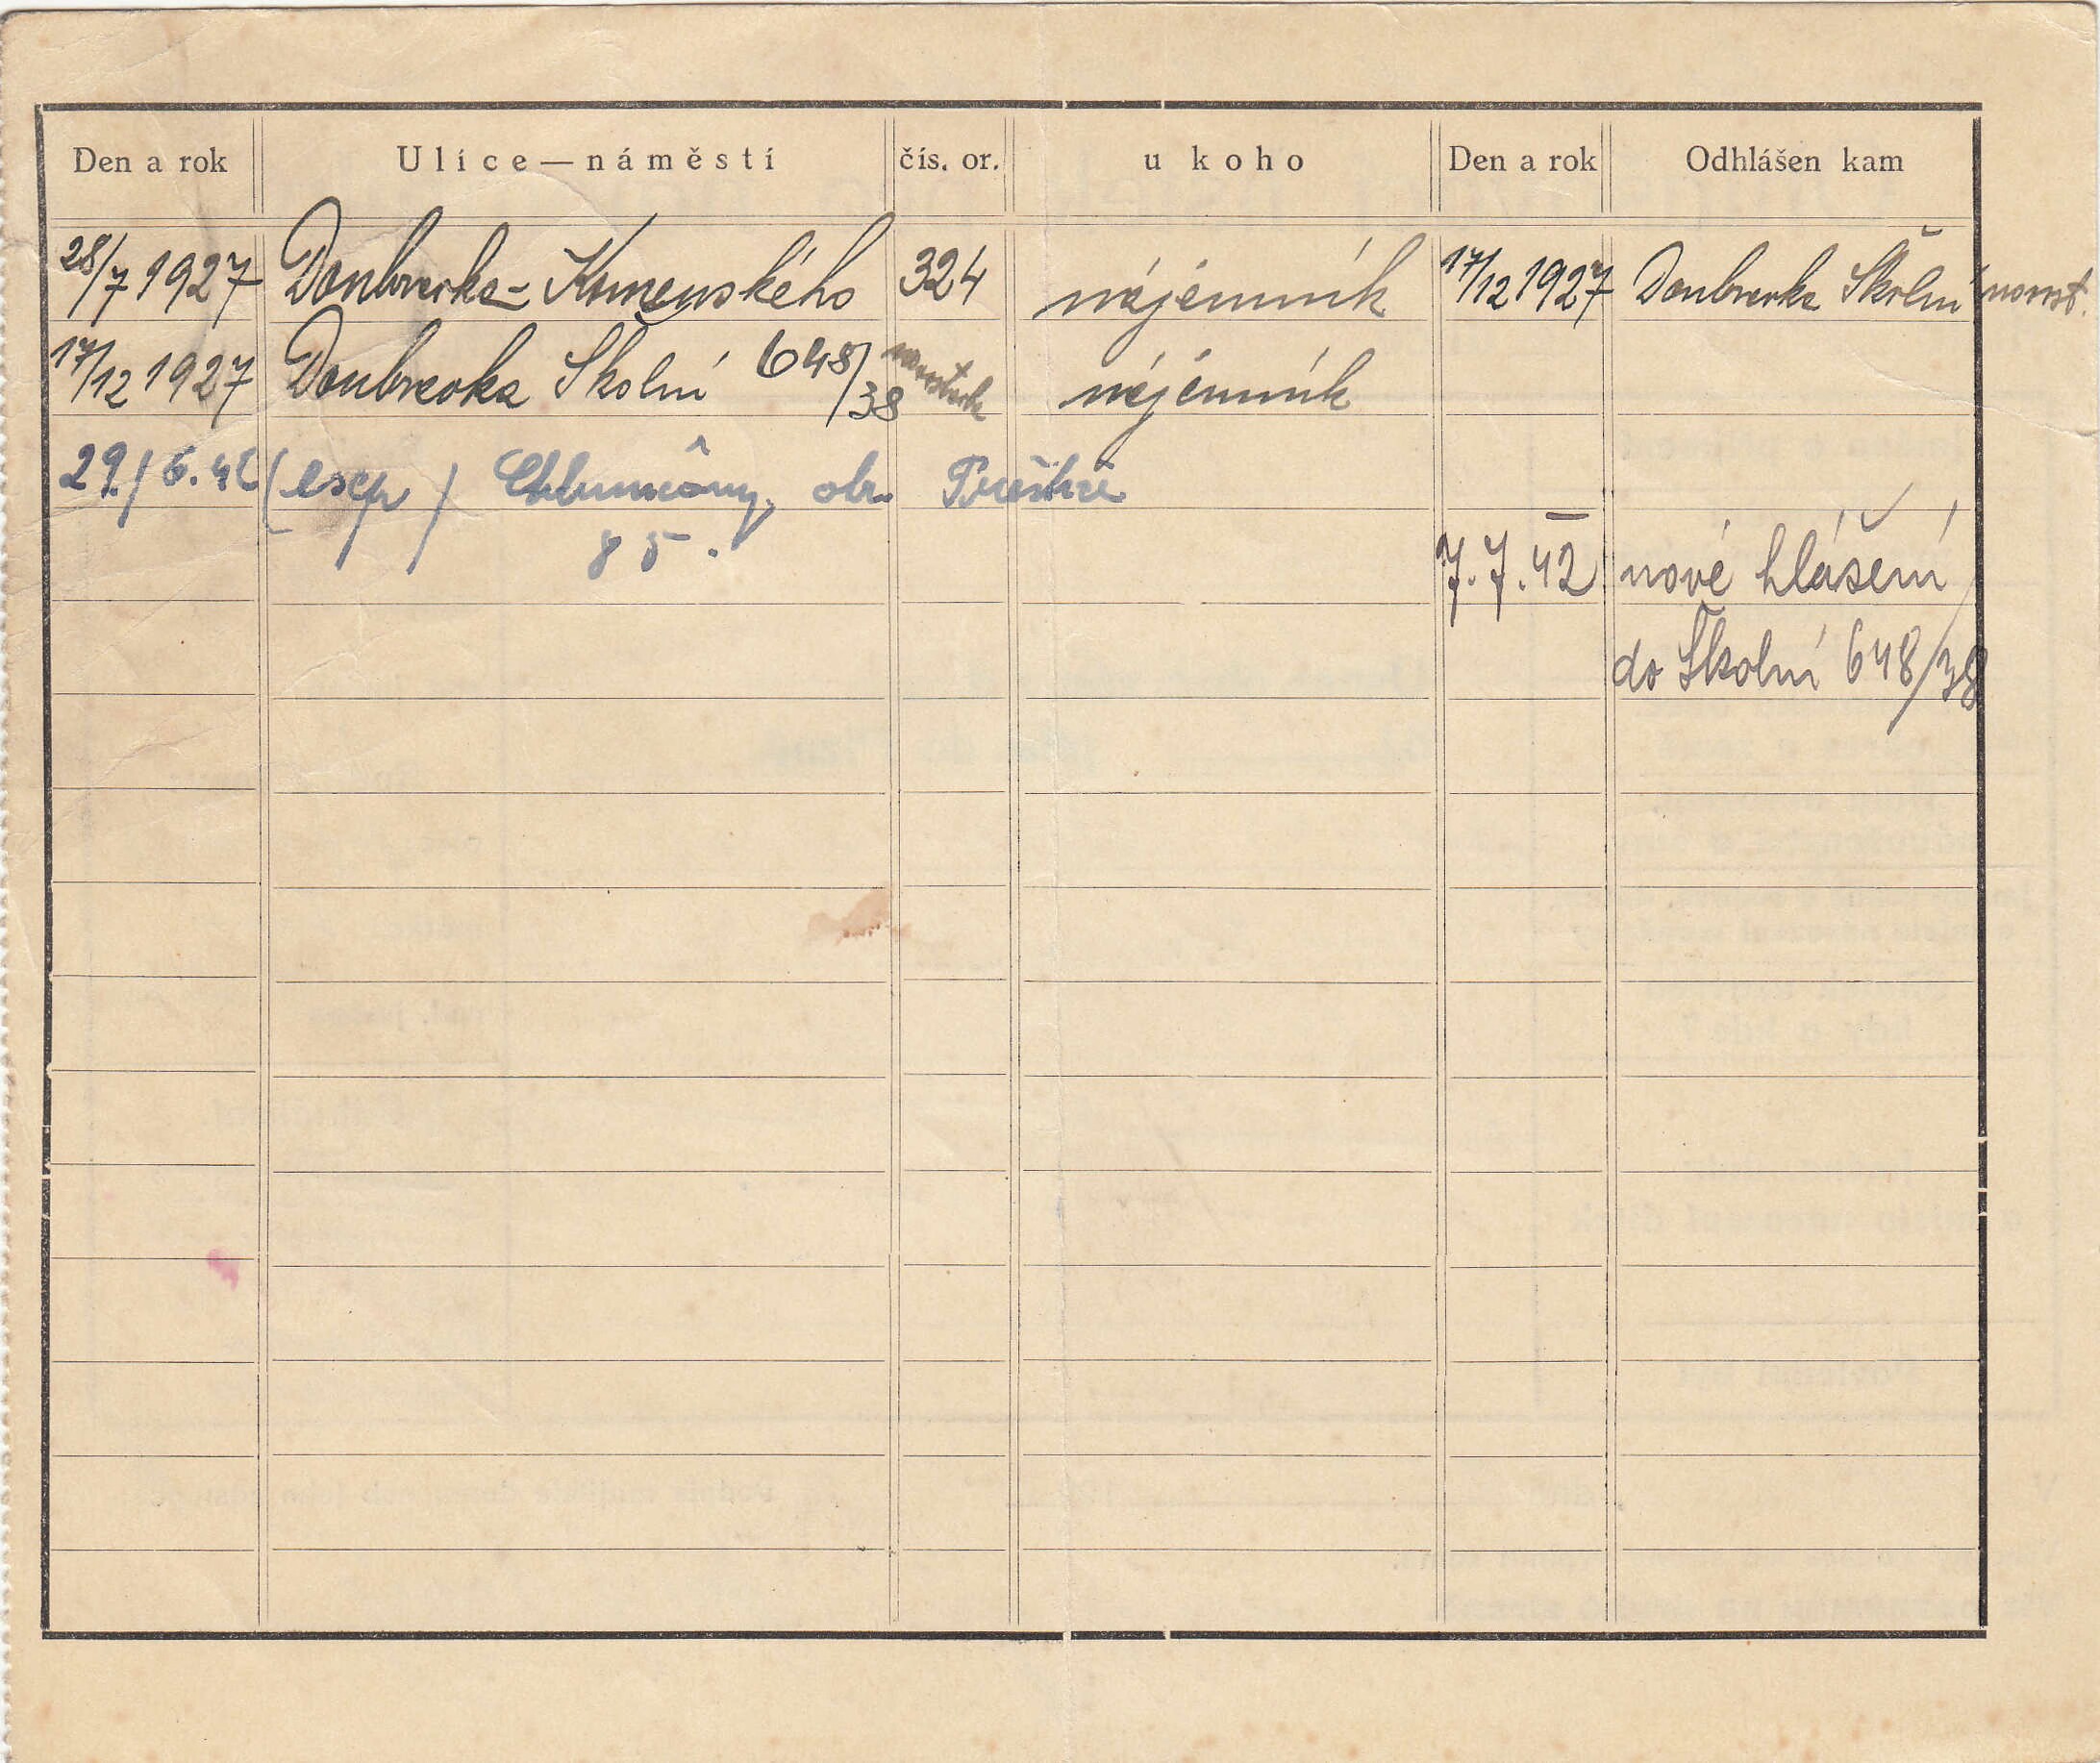 Den a rok Ulice — náměstí čís. or. u koho Den a rok Odhlášen kam
28/7 1927 Doubravka - Komenského 324 nájemník 17/12 1927 Doubravka Školní novost.
17/12 1927 Doubravka Školní 648/38 novostavba nájemník
29./6. 42 ( / Chlumčany, okr. Přeštice
85.
7.7.42 nové hlášení
do Školní 648/38